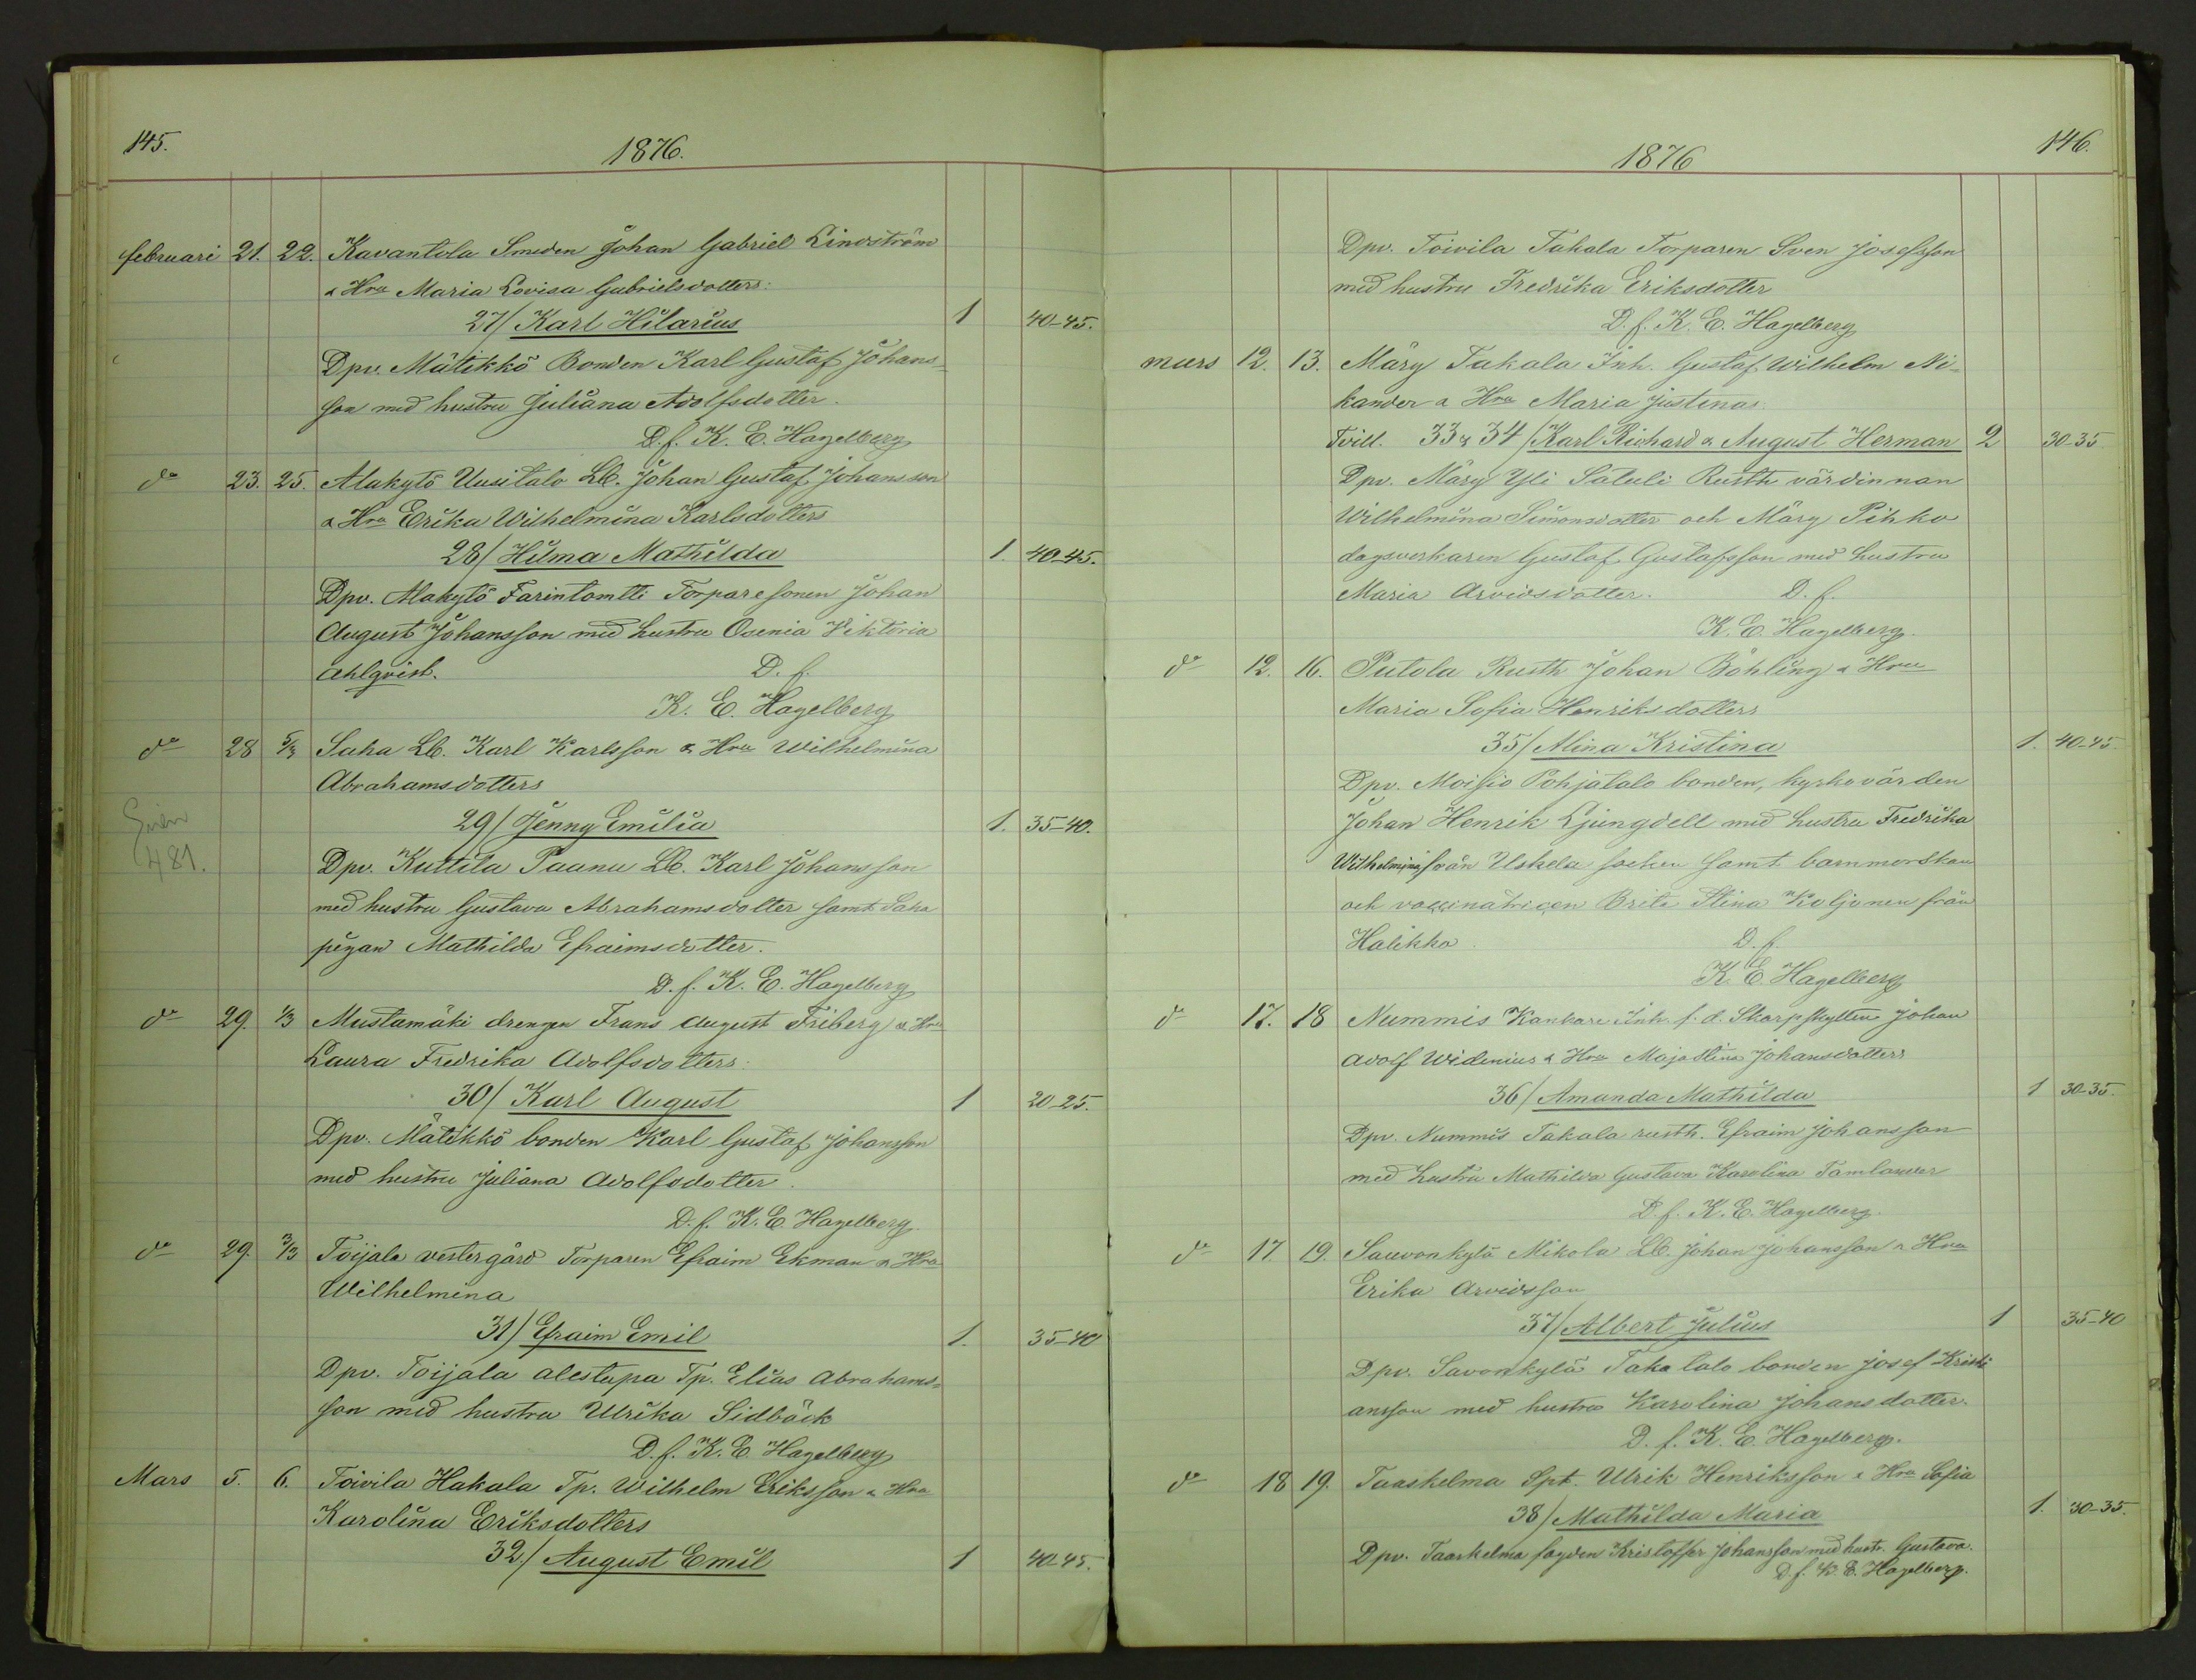 145.
1876.
februari 21. 22. Kavantola Smeden Johan Gabriel Lindström
& Hru Maria Lovisa Gabrielsdotters:
27/ Karl Hilarius 1 40-45.
Dpv. Mätikkö Bonden Karl Gustaf Johans-
son med hustru Juliana Adolfsdotter.
D. f. K. E. Hagelberg
do 23. 25. Alakytö Uusitalo Lb. Johan Gustaf Johansson
& Hru Erika Wilhelmina Karlsdotters
28/ Hilma Mathilda 1. 40-45.
Dpv. Alakytö Farintomtti Torparesonen Johan
August Johansson med hustru Osenia Viktoria
Ahlqvist. D. f.
K. E. Hagelberg
do 28 5/3 Saha Lb. Karl Karlsson & Hru Wilhelmina
Abrahamsdotters
29/ Jenny Emilia 1. 35-40.
481.
Dpv. Kuttila Paanu Lb. Karl Johansson
med hustru Gustava Abrahamsdotter samt Saha
pigan Mathilda Efraimsdotter.
D. f. K. E. Hagelberg
do 29. 1/3 Mustamäki drengen Frans August Friberg & Hru
Laura Fredrika Adolfsdotters:
30/ Karl August 1 20-25.
Dpv. Mätikkö bonden Karl Gustaf Johansson
med hustru Juliana Adolfsdotter.
D. f. K. E. Hagelberg
do 29. 3/3 Toijala vestergård Torparen Efraim Ekman & Hru
Wilhelmina
31/ Efraim Emil 1. 35-40
Dpv. Toijala alestupa Tp. Elias Abrahams-
son med hustru Ulrika Sidbäck
D. f. K. E. Hagelberg
Mars 5. 6. Toivila Hakala Tp. Wilhelm Eriksson & Hru
Karolina Eriksdotters
32/ August Emil 1 40-45.
1876
146.
Dpv. Toivila Tahala Torparen Sven Josefsson
med hustru Fredrika Eriksdotter
D. f. K. E. Hagelberg
mars 12. 13. Märy Takala Inh. Gustaf Wilhelm Ni-
kander & Hru Maria Justinas
Tvill. 33 & 34 / Karl Richard & August Herman 2 30-35
Dpv. Märy Yli Satuli Rusth värdinnan
Wilhelmina Simonsdotter och Märy Pihko
dagsverkaren Gustaf Gustafsson med hustru
Maria Arvidsdotter. D. f.
K. E. Hagelberg.
do 12. 16. Putola Rusth Johan Böhling & Hru
Maria Sofia Henriksdotters
35/ Alina Kristina 1. 40-45.
Dpv. Moisio Pohjatalo bonden, kyrkovärden
Johan Henrik Ljungdell med hustru Fredrika
Wilhelmina från Uskela socken samt barnmorskan
och vaccinatricen Brita Stina Koljonen från
Halikko. D. f.
K. E. Hagelberg
do 17. 18 Nummis Kankare Inh. f. d. Skarpskytten Johan
Adolf Widenius & Hru Maja Stina Johansdotters
36/ Amanda Mathilda 1 30-35.
Dpv. Nummis Takala rusth. Efraim Johansson
med hustru Mathilda Gustava Karolina Tamlander
D. f. K. E. Hagelberg.
do 17. 19. Sauvonkylä Mikola Lb. Johan Johansson & Hru
Erika Arvidsson
37/ Albert Julius 1 35-40
Dpv. Savonkylä Taka talo bonden Josef Kristi
ansson med hustru Karolina Johansdotter.
D. f. K. E. Hagelberg.
do 18 19. Taaskelma Spt. Ulrik Henriksson & Hru Sofia
38/ Mathilda Maria 1. 30-35.
Dpv. Taaskelma fogden Kristoffer Johansson med hustr. Gustava.
D. f. K. E. Hagelberg.